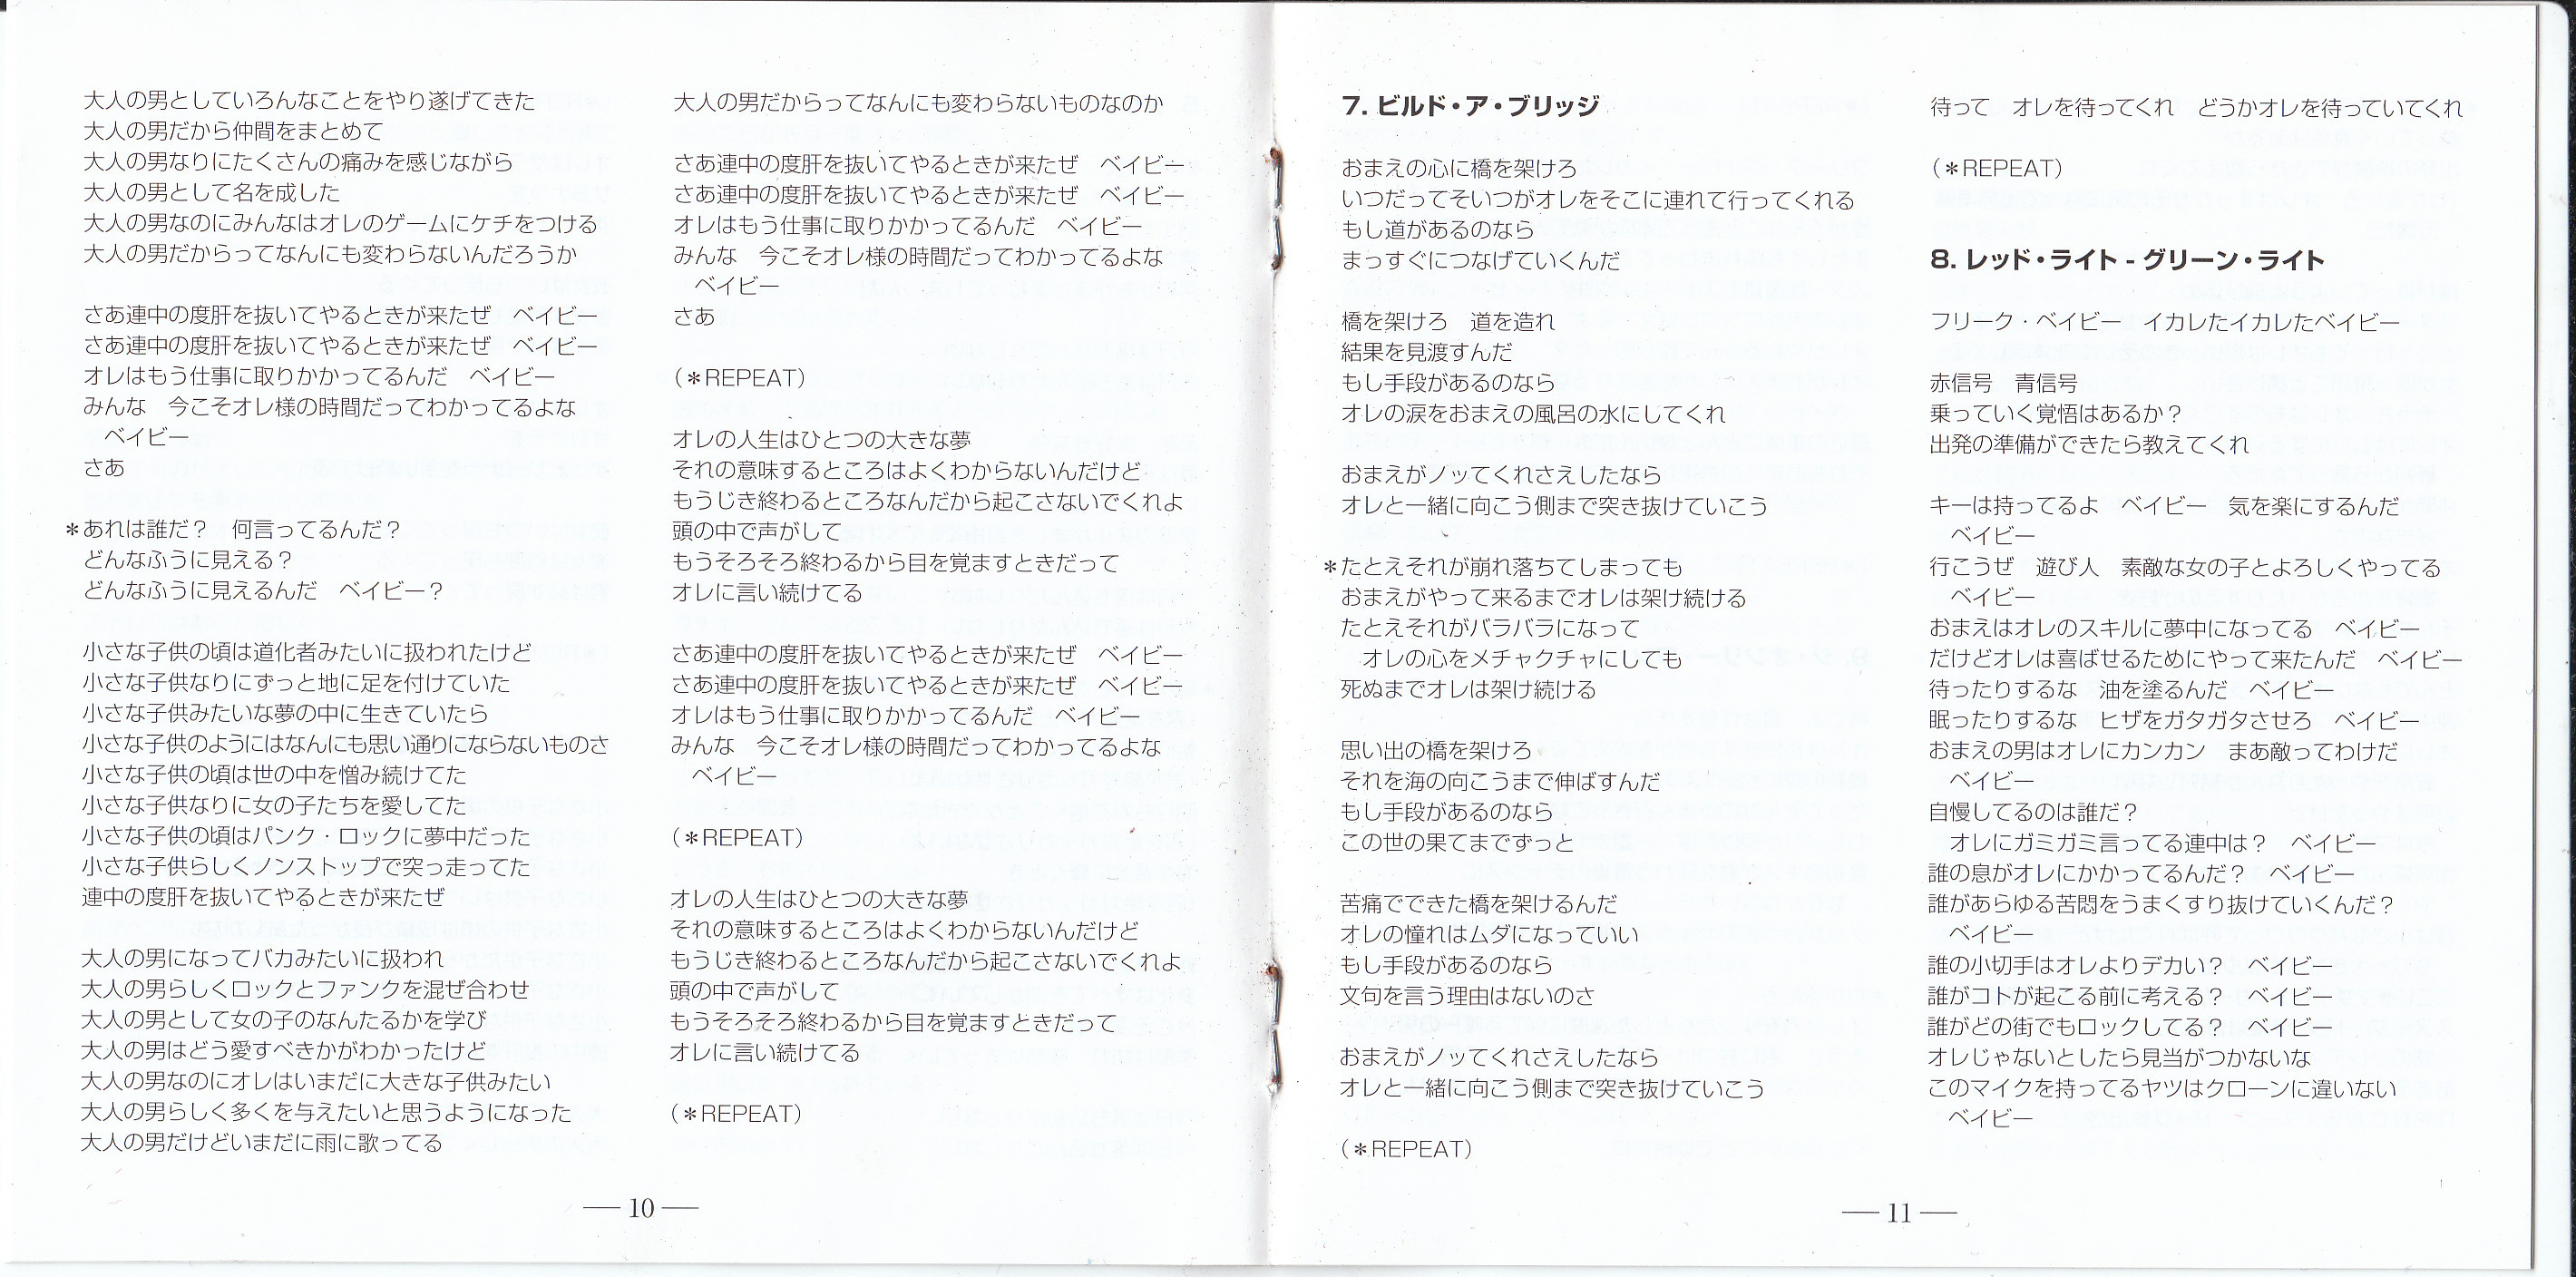 大人の男としていろんなことをやり遂げてきた
大人の男だから仲間をまとめて
大人の男なりにたくさんの痛みを感じながら
大人の男として名を成した
大人の男なのにみんなはオレのゲームにケチをつける
大人の男だからってなんにも変わらないんだろうか
さあ連中の度肝を抜いてやるときが来たぜ　ベイビー
さあ連中の度肝を抜いてやるときが来たぜ　ベイビー
オレはもう仕事に取りかかってるんだ　ベイビー
みんな　今こそオレ様の時間だってわかってるよな
ベイビー
さあ
＊あれは誰だ？　何言ってるんだ？
どんなふうに見える？
どんなふうに見えるんだ　ベイビー？
小さな子供の頃は道化者みたいに扱われたけど
小さな子供なりにずっと地に足を付けていた
小さな子供みたいな夢の中に生きていたら
小さな子供のようにはなんにも思い通りにならないものさ
小さな子供の頃は世の中を憎み続けてた
小さな子供なりに女の子たちを愛してた
小さな子供の頃はパンク・ロックに夢中だった
小さな子供らしくノンストップで突っ走ってた
連中の度肝を抜いてやるときが来たぜ
大人の男になってバカみたいに扱われ
大人の男らしくロックとファンクを混ぜ合わせ
大人の男として女の子のなんたるかを学び
大人の男はどう愛すべきかがわかったけど
大人の男なのにオレはいまだに大きな子供みたい
大人の男らしく多くを与えたいと思うようになった
大人の男だけどいまだに雨に歌ってる
大人の男だからってなんにも変わらないものなのか
さあ連中の度肝を抜いてやるときが来たぜ　ベイビー
さあ連中の度肝を抜いてやるときが来たぜ　ベイビー
オレはもう仕事に取りかかってるんだ　ベイビー
みんな　今こそオレ様の時間だってわかってるよな
ベイビー
さあ
（＊REPEAT）
オレの人生はひとつの大きな夢
それの意味するところはよくわからないんだけど
もうじき終わるところなんだから起こさないでくれよ
頭の中で声がして
もうそろそろ終わるから目を覚ますときだって
オレに言い続けてる
さあ連中の度肝を抜いてやるときが来たぜ　ベイビー
さあ連中の度肝を抜いてやるときが来たぜ　ベイビー
オレはもう仕事に取りかかってるんだ　ベイビー
みんな　今こそオレ様の時間だってわかってるよな
ベイビー
（＊REPEAT）
オレの人生はひとつの大きな夢
それの意味するところはよくわからないんだけど
もうじき終わるところなんだから起こさないでくれよ
頭の中で声がして
もうそろそろ終わるから目を覚ますときだって
オレに言い続けてる
（＊REPEAT）
— 10 —
7. ビルド・ア・ブリッジ
おまえの心に橋を架けろ
いつだってそいつがオレをそこに連れて行ってくれる
もし道があるのなら
まっすぐにつなげていくんだ
橋を架けろ　道を造れ
結果を見渡すんだ
もし手段があるのなら
オレの涙をおまえの風呂の水にしてくれ
おまえがノッてくれさえしたなら
オレと一緒に向こう側まで突き抜けていこう
＊たとえそれが崩れ落ちてしまっても
おまえがやって来るまでオレは架け続ける
たとえそれがバラバラになって
オレの心をメチャクチャにしても
死ぬまでオレは架け続ける
思い出の橋を架けろ
それを海の向こうまで伸ばすんだ
もし手段があるのなら
この世の果てまでずっと
苦痛でできた橋を架けるんだ
オレの憧れはムダになっていい
もし手段があるのなら
文句を言う理由はないのさ
おまえがノッてくれさえしたなら
オレと一緒に向こう側まで突き抜けていこう
（＊REPEAT）
待って　オレを待ってくれ　どうかオレを待っていてくれ
（＊REPEAT）
8. レッド・ライト - グリーン・ライト
フリーク・ベイビー　イカレたイカレたベイビー
赤信号　青信号
乗っていく覚悟はあるか？
出発の準備ができたら教えてくれ
キーは持ってるよ　ベイビー　気を楽にするんだ
ベイビー
行こうぜ　遊び人　素敵な女の子とよろしくやってる
ベイビー
おまえはオレのスキルに夢中になってる　ベイビー
だけどオレは喜ばせるためにやって来たんだ　ベイビー
待ったりするな　油を塗るんだ　ベイビー
眠ったりするな　ヒザをガタガタさせろ　ベイビー
おまえの男はオレにカンカン　まあ敵ってわけだ
ベイビー
自慢してるのは誰だ？
オレにガミガミ言ってる連中は？　ベイビー
誰の息がオレにかかってるんだ？　ベイビー
誰があらゆる苦悶をうまくすり抜けていくんだ？
ベイビー
誰の小切手はオレよりデカい？　ベイビー
誰がコトが起こる前に考える？　ベイビー
誰がどの街でもロックしてる？　ベイビー
オレじゃないとしたら見当がつかないな
このマイクを持ってるヤツはクローンに違いない
ベイビー
— 11 —